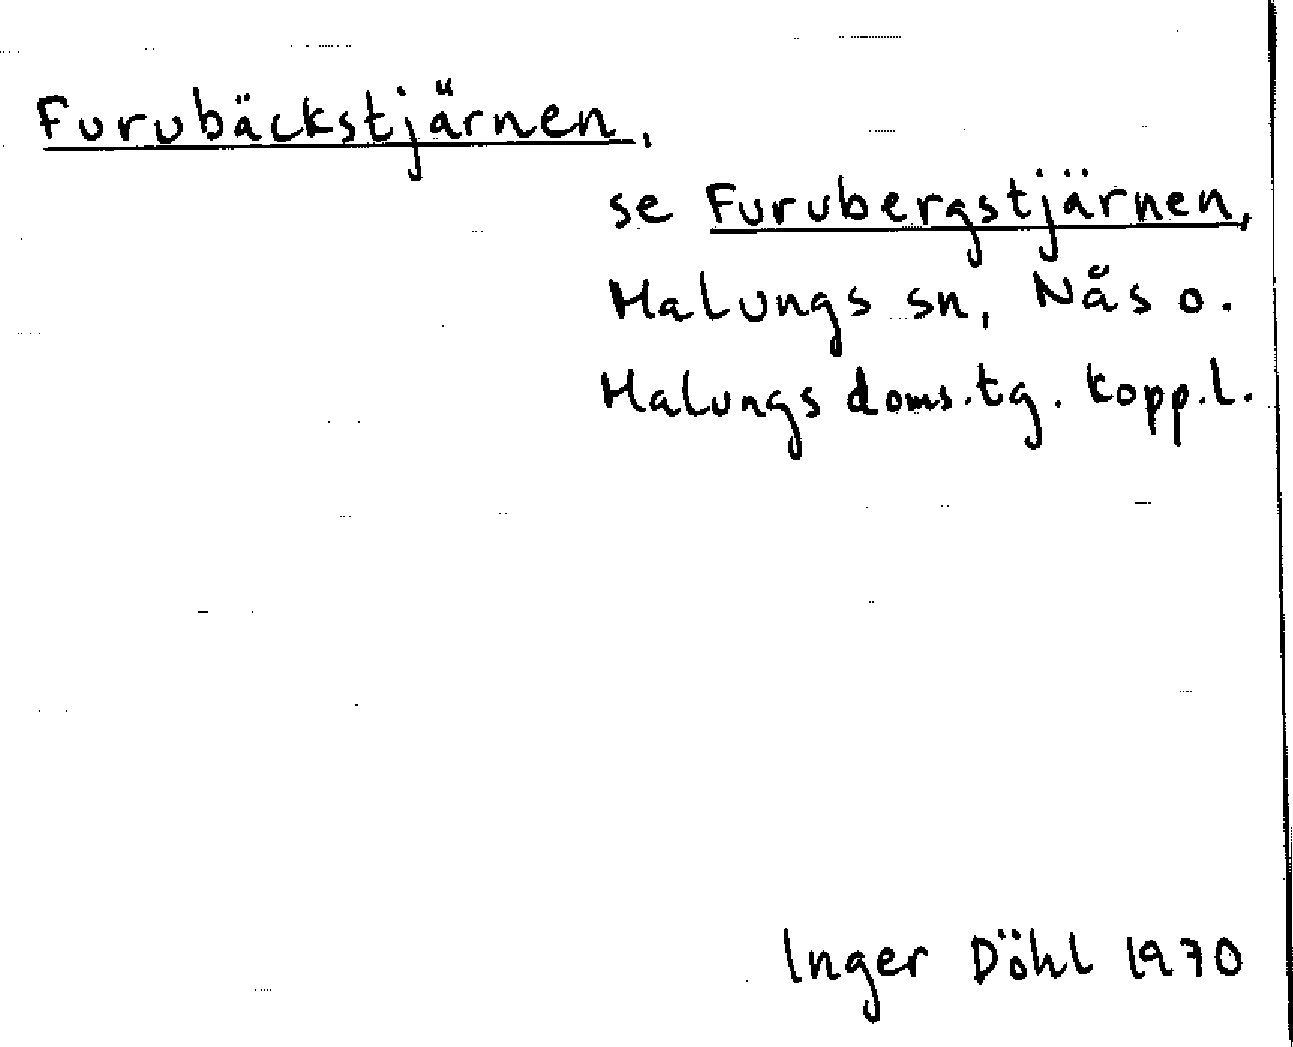 Furubäckstjärnen,
se Furubergstjärnen,
Malungs sn, Nås o.
Malungs doms.tg. kopp.l.
Inger Döhl 1970